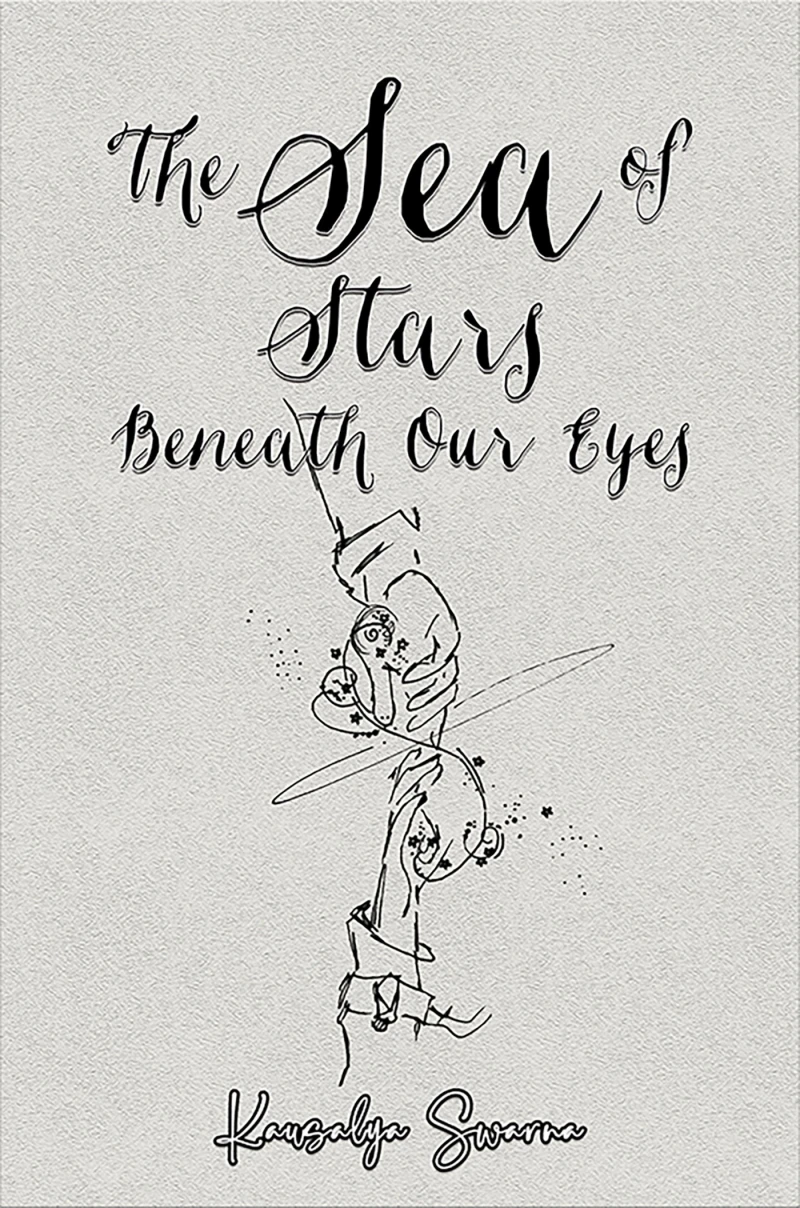 The Sea of
Stars
Beneath Our Eyes
Kausalya Swarna